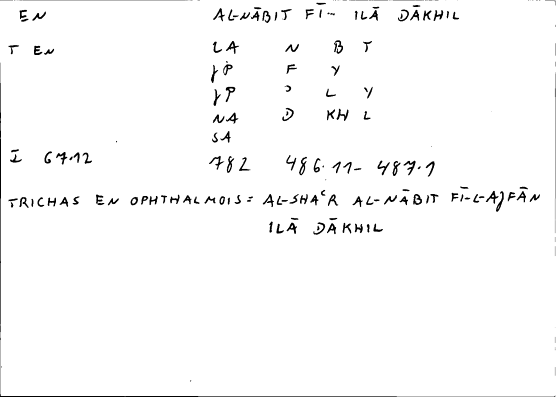 EN AL-NĀBIT FĪ- ILĀ DĀKHIL
T EN LA N B T
JP F Y
JP ʾ L Y
NA D KH L
SA
I 67.12 782 486.11-487.1
TRICHAS EN OPHTHALMOIS = AL-SHAʿR AL-NĀBIT FĪ-L-AJFĀN
ILĀ DĀKHIL